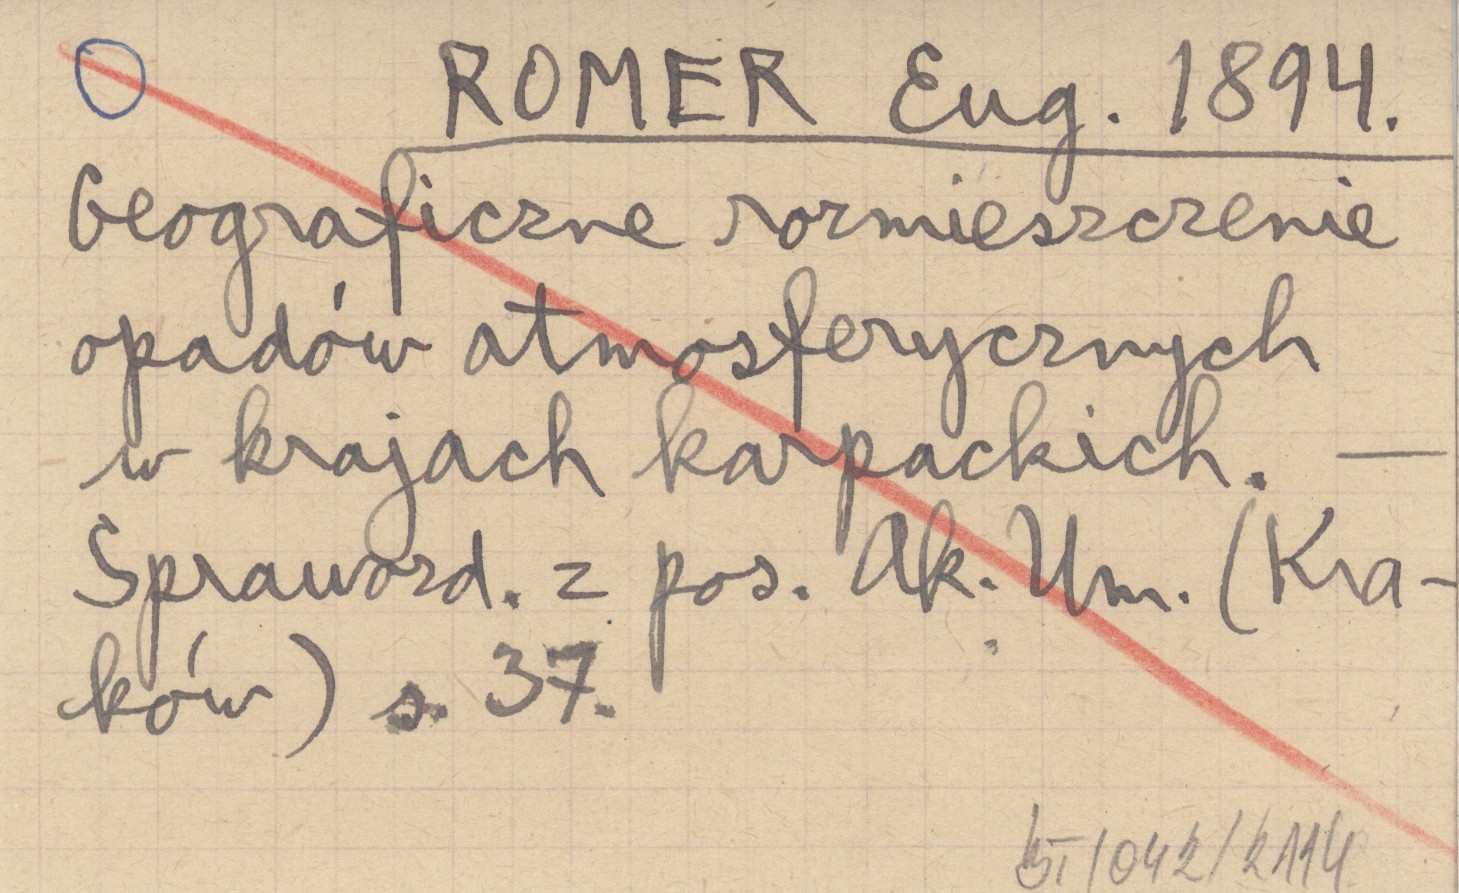 ROMER Eug. 1894.
Geograficzne rozmieszczenie
opadów atmosferycznych
w krajach karpackich. —
Sprawozd. z pos. Ak. Um. (Kra-
ków) s. 37.
/042/2114